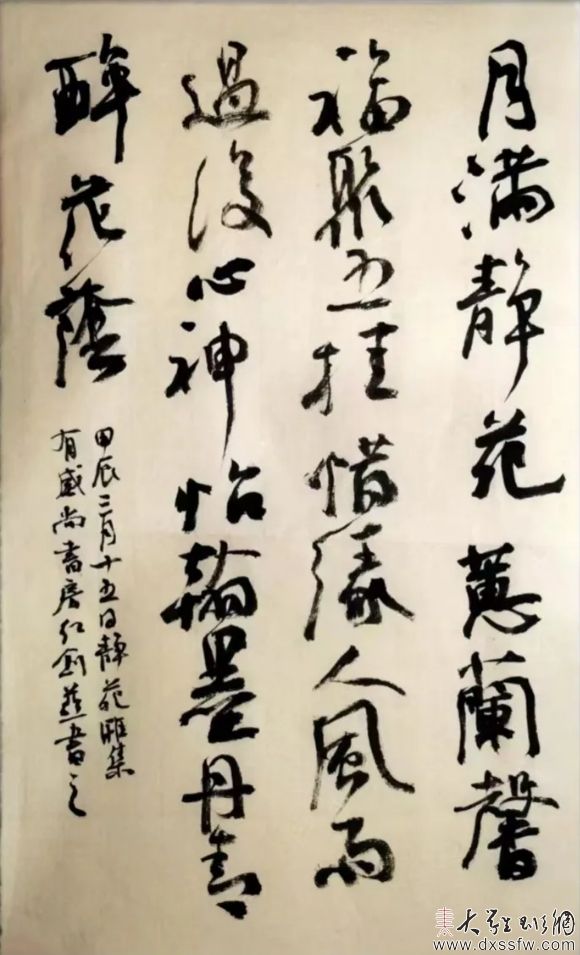 月满静苑蕙蘭馨
福聚五桂惜缘人風雨
過後心神怡翰墨丹青
醉花蔭
甲辰三月十五日静苑雅集
有感尚書房红剑燕書之
大学生财淙網
www.dxssfw.com